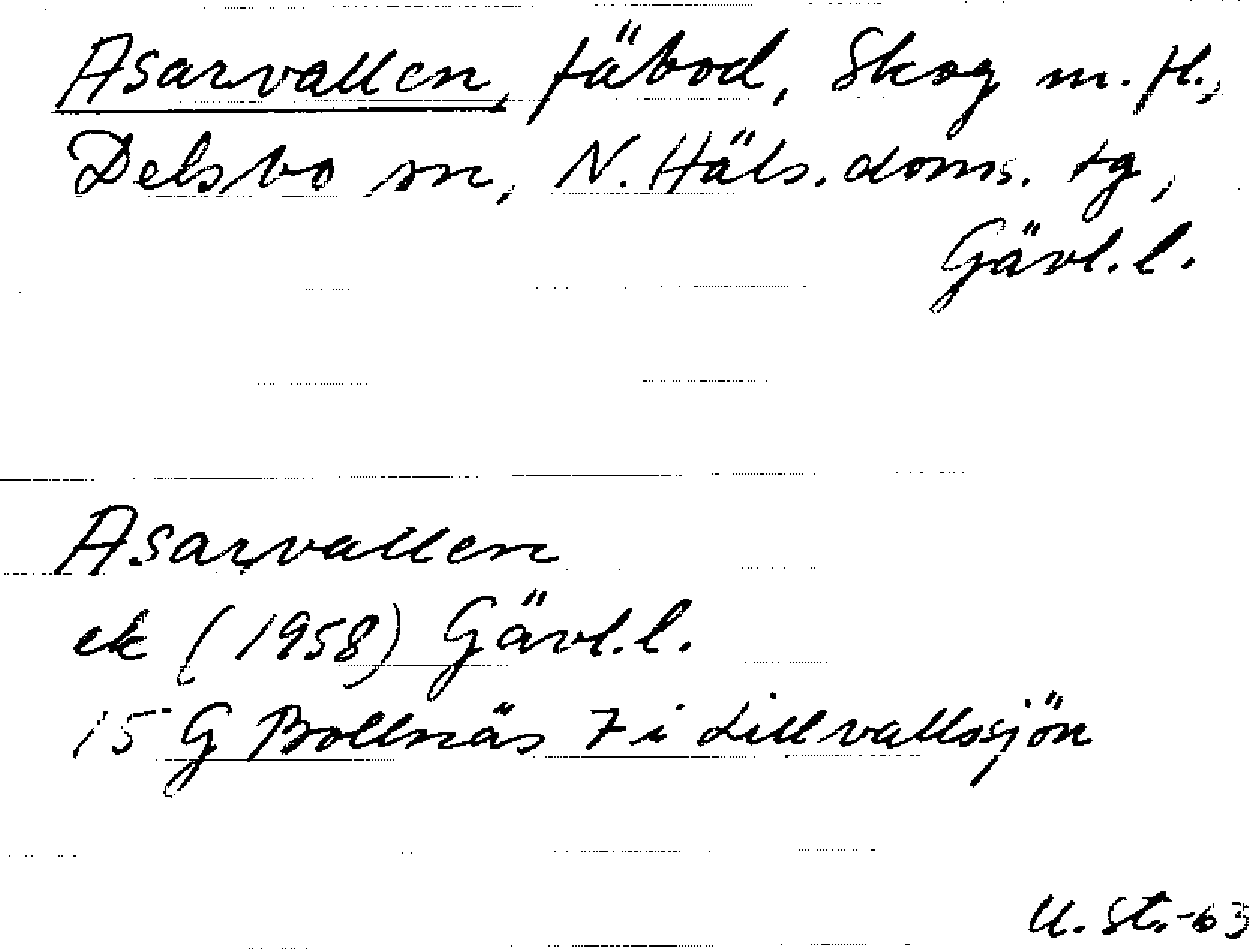 Asarvallen, fäbod, Skog m. fl.,
Delsbo sn, N. Häls. doms. tg,
Gävl. l.
Asarvallen
ek (1958) Gävl. l.
15 G Bollnäs 7 i Lillvallssjön
U. St. -63